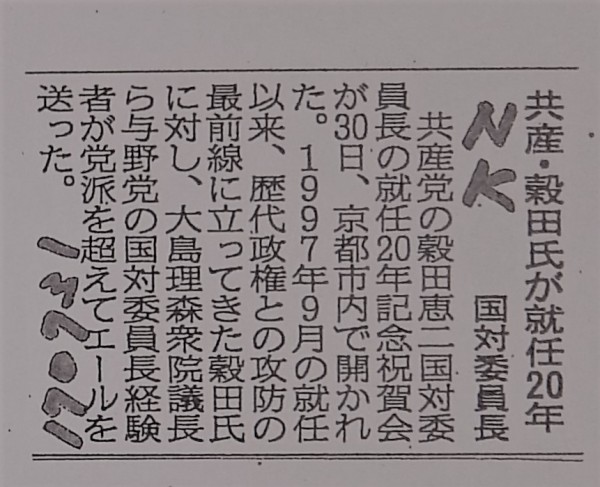 共産・穀田氏が就任20年
国対委員長
NK
共産党の穀田恵二国対委
員長の就任20年記念祝賀会
が30日、京都市内で開かれ
た。1997年9月の就任
以来、歴代政権との攻防の
最前線に立ってきた穀田氏
に対し、大島理森衆院議長
ら与野党の国対委員長経験
者が党派を超えてエールを
送った。
170731